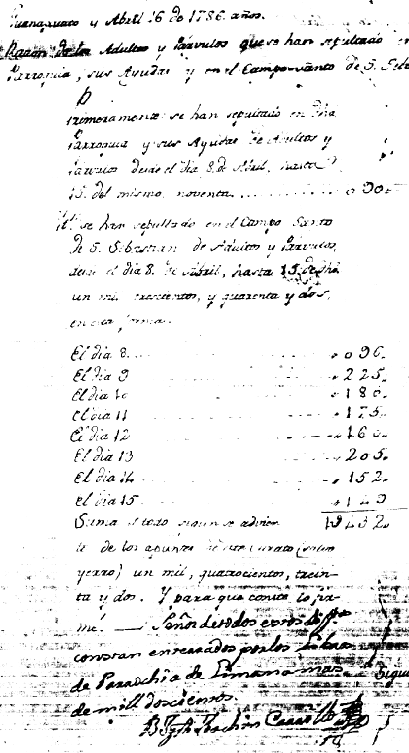 Guanajuato y Abril 16 de 1786. años.
Razon de los Adultos y Parvulos que se han sepultado en
Parroquia, sus Ayudas y en el Campo santo de S. Seb
Primeramente se han sepultado en dha
Parroquia y sus Ayudas de Adultos y
Parvulos desde el dia 8. de Abril, hasta
15. del mismo, noventa......... 090.
It. se han sepultado en el Campo Santo
de S. Sebastian de Adultos y Parvulos,
desde el dia 8. de Abril, hasta 15 de dho
un mil trescientos, y quarenta y dos,
en esta forma.
El dia 8... 096.
El dia 9 225.
El dia 10 180.
El dia 11 175.
El dia 12 160.
El dia 13 205.
El dia 14 152
el dia 15 149
Suma el todo segun se advier 1432.
te de los apuntes de este Curato (salvo
yerro) un mil, quatrocientos, trein
ta y dos. Y para que conste lo fir
mé.
Señor de todos estos
constan enterrados por los Libros
de Parrochia de mas
de mill doscientos.
B. Joachin